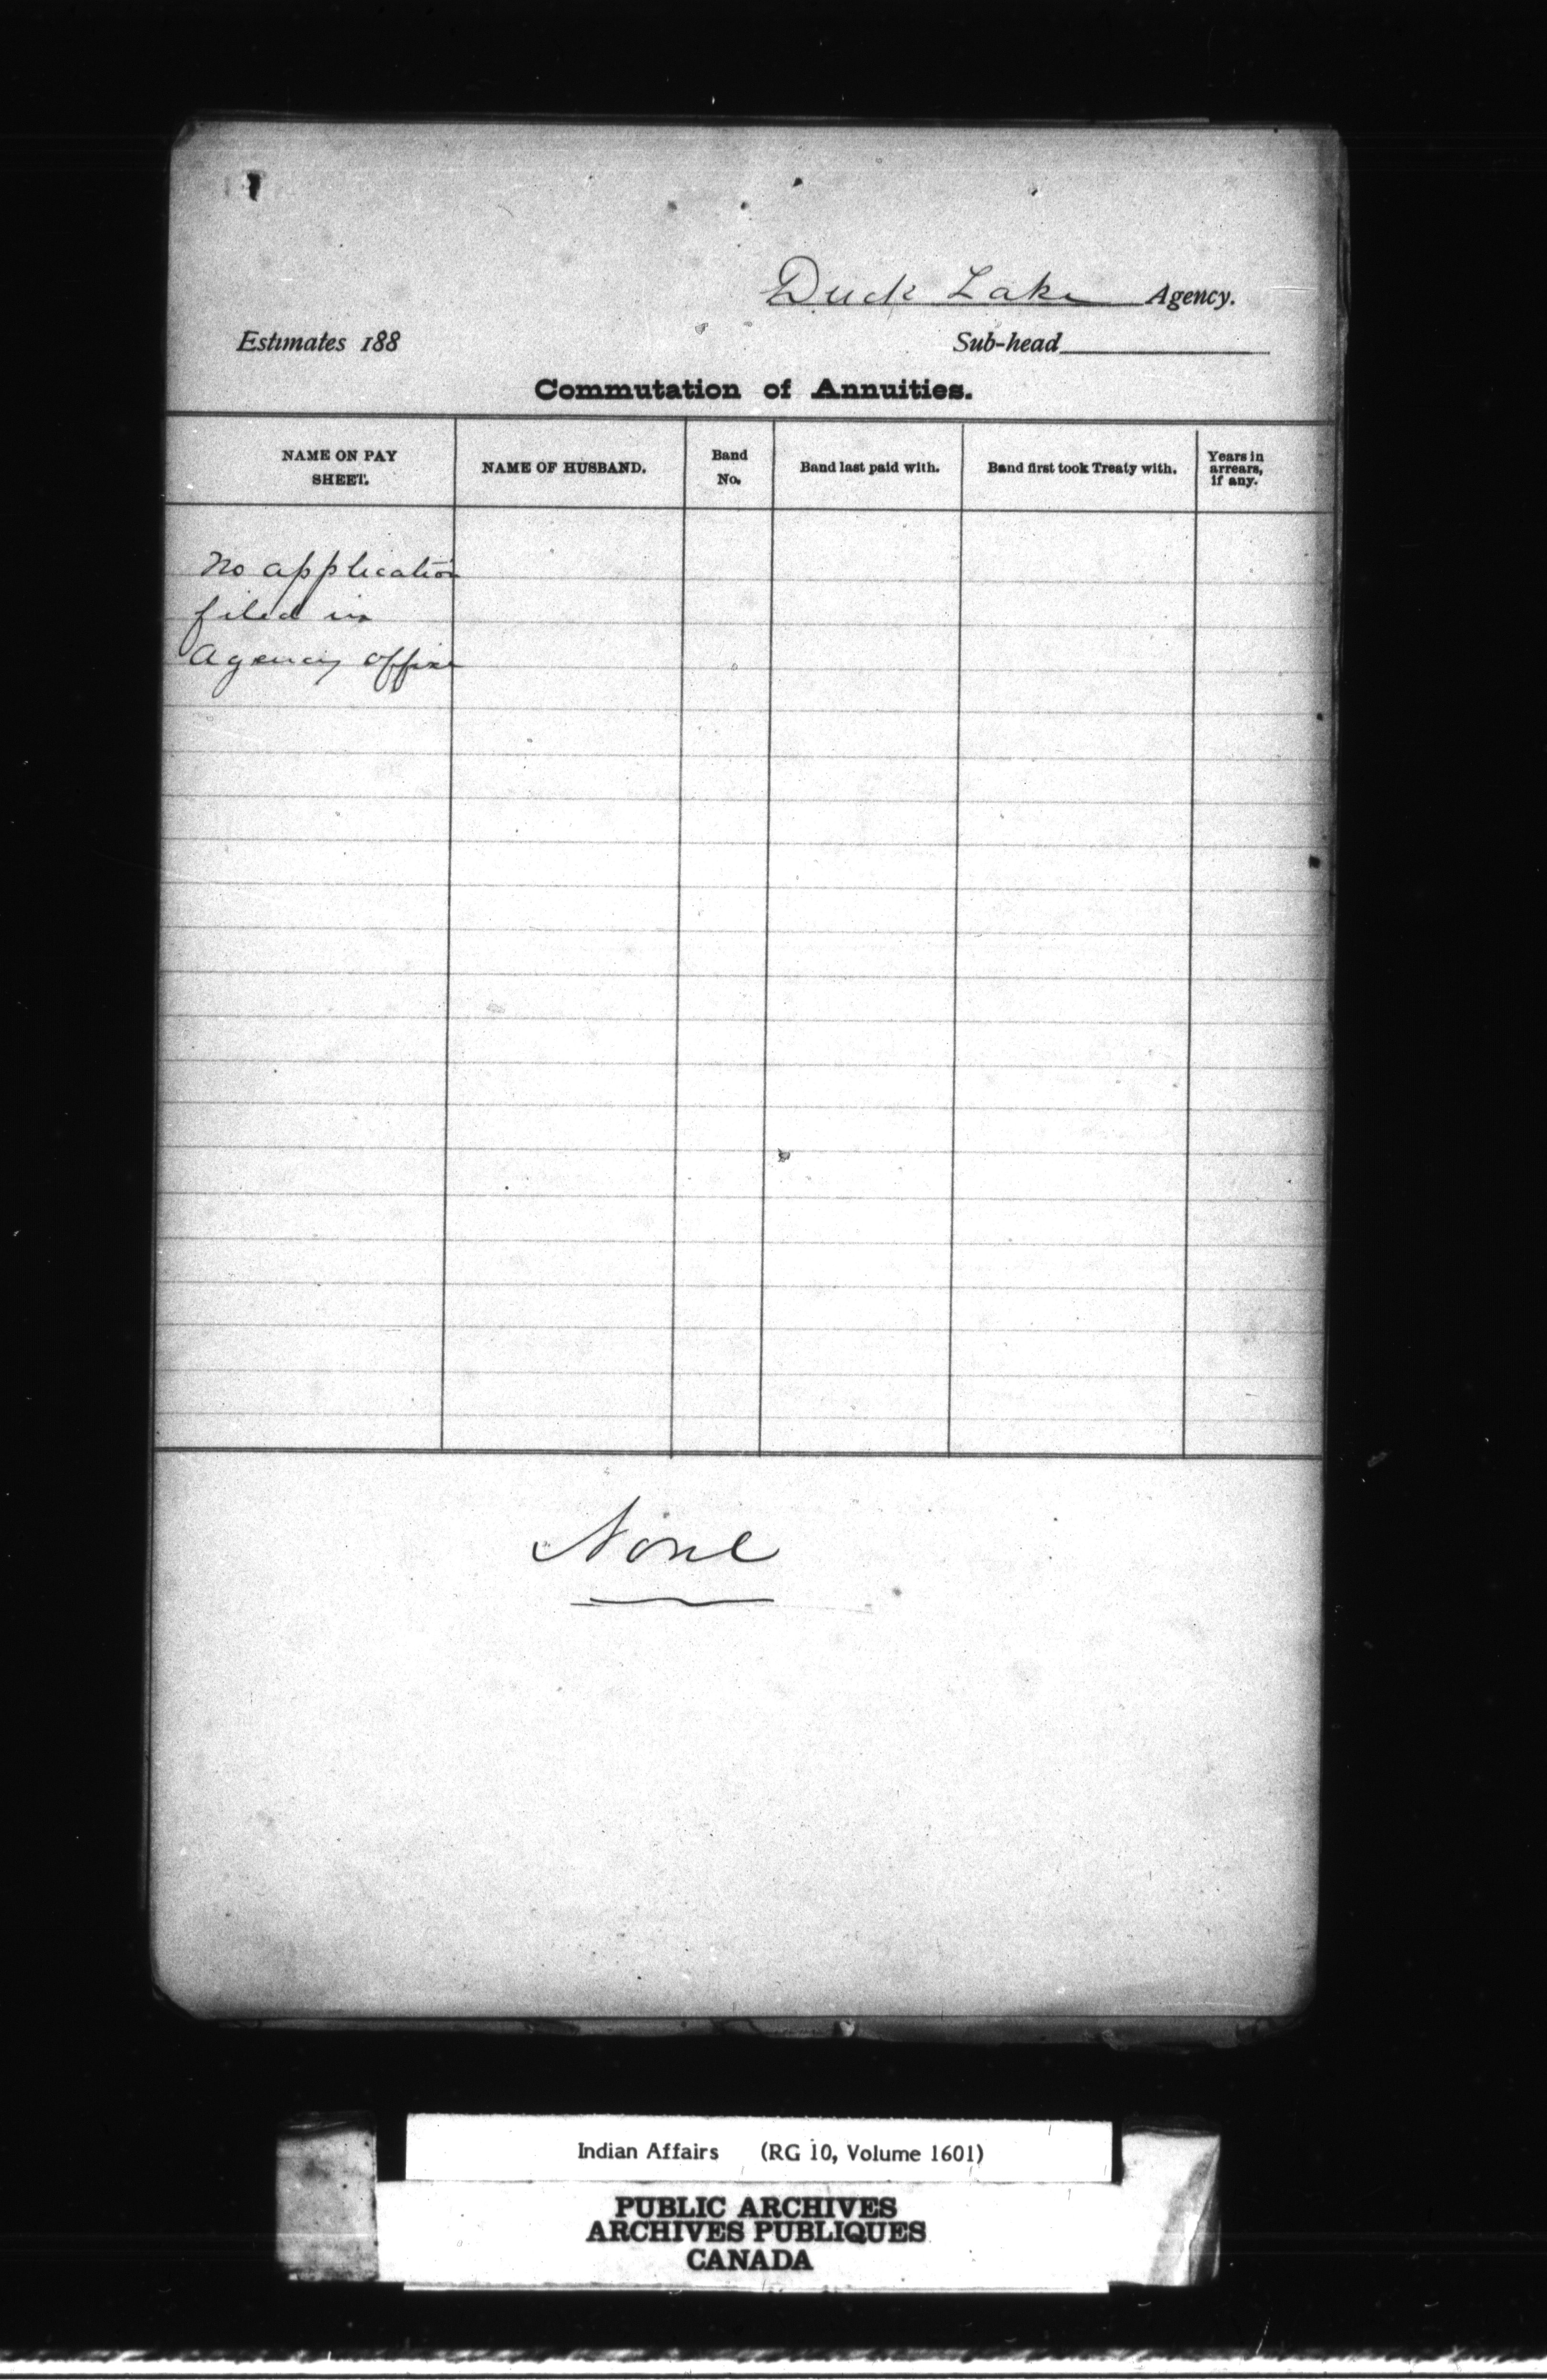 Duck Lake Agency.
Estimates 188
Sub-head
Commutation of Annuities.
NAME ON PAY SHEET.
NAME OF HUSBAND.
Band No.
Band last paid with.
Band first took Treaty with.
Years in arrears, if any.
No application
filed in
Agency office
None
Indian Affairs (RG 10, Volume 1601)
PUBLIC ARCHIVES
ARCHIVES PUBLIQUES
CANADA